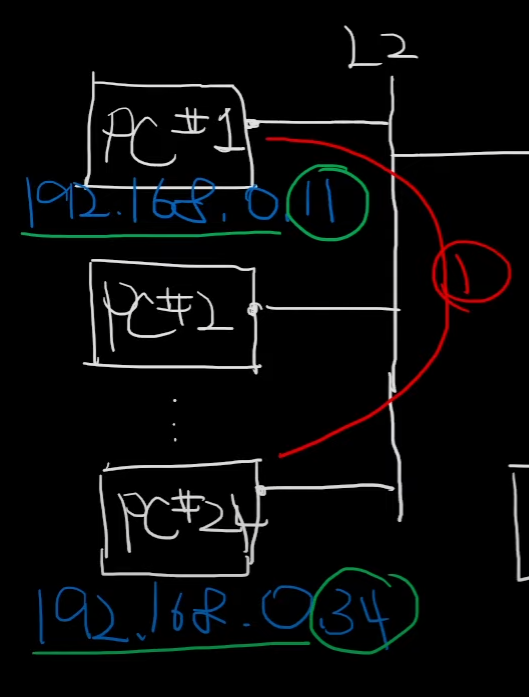 L2
PC#1
192.168.0.11
1
PC#2
PC#24
192.168.0.34